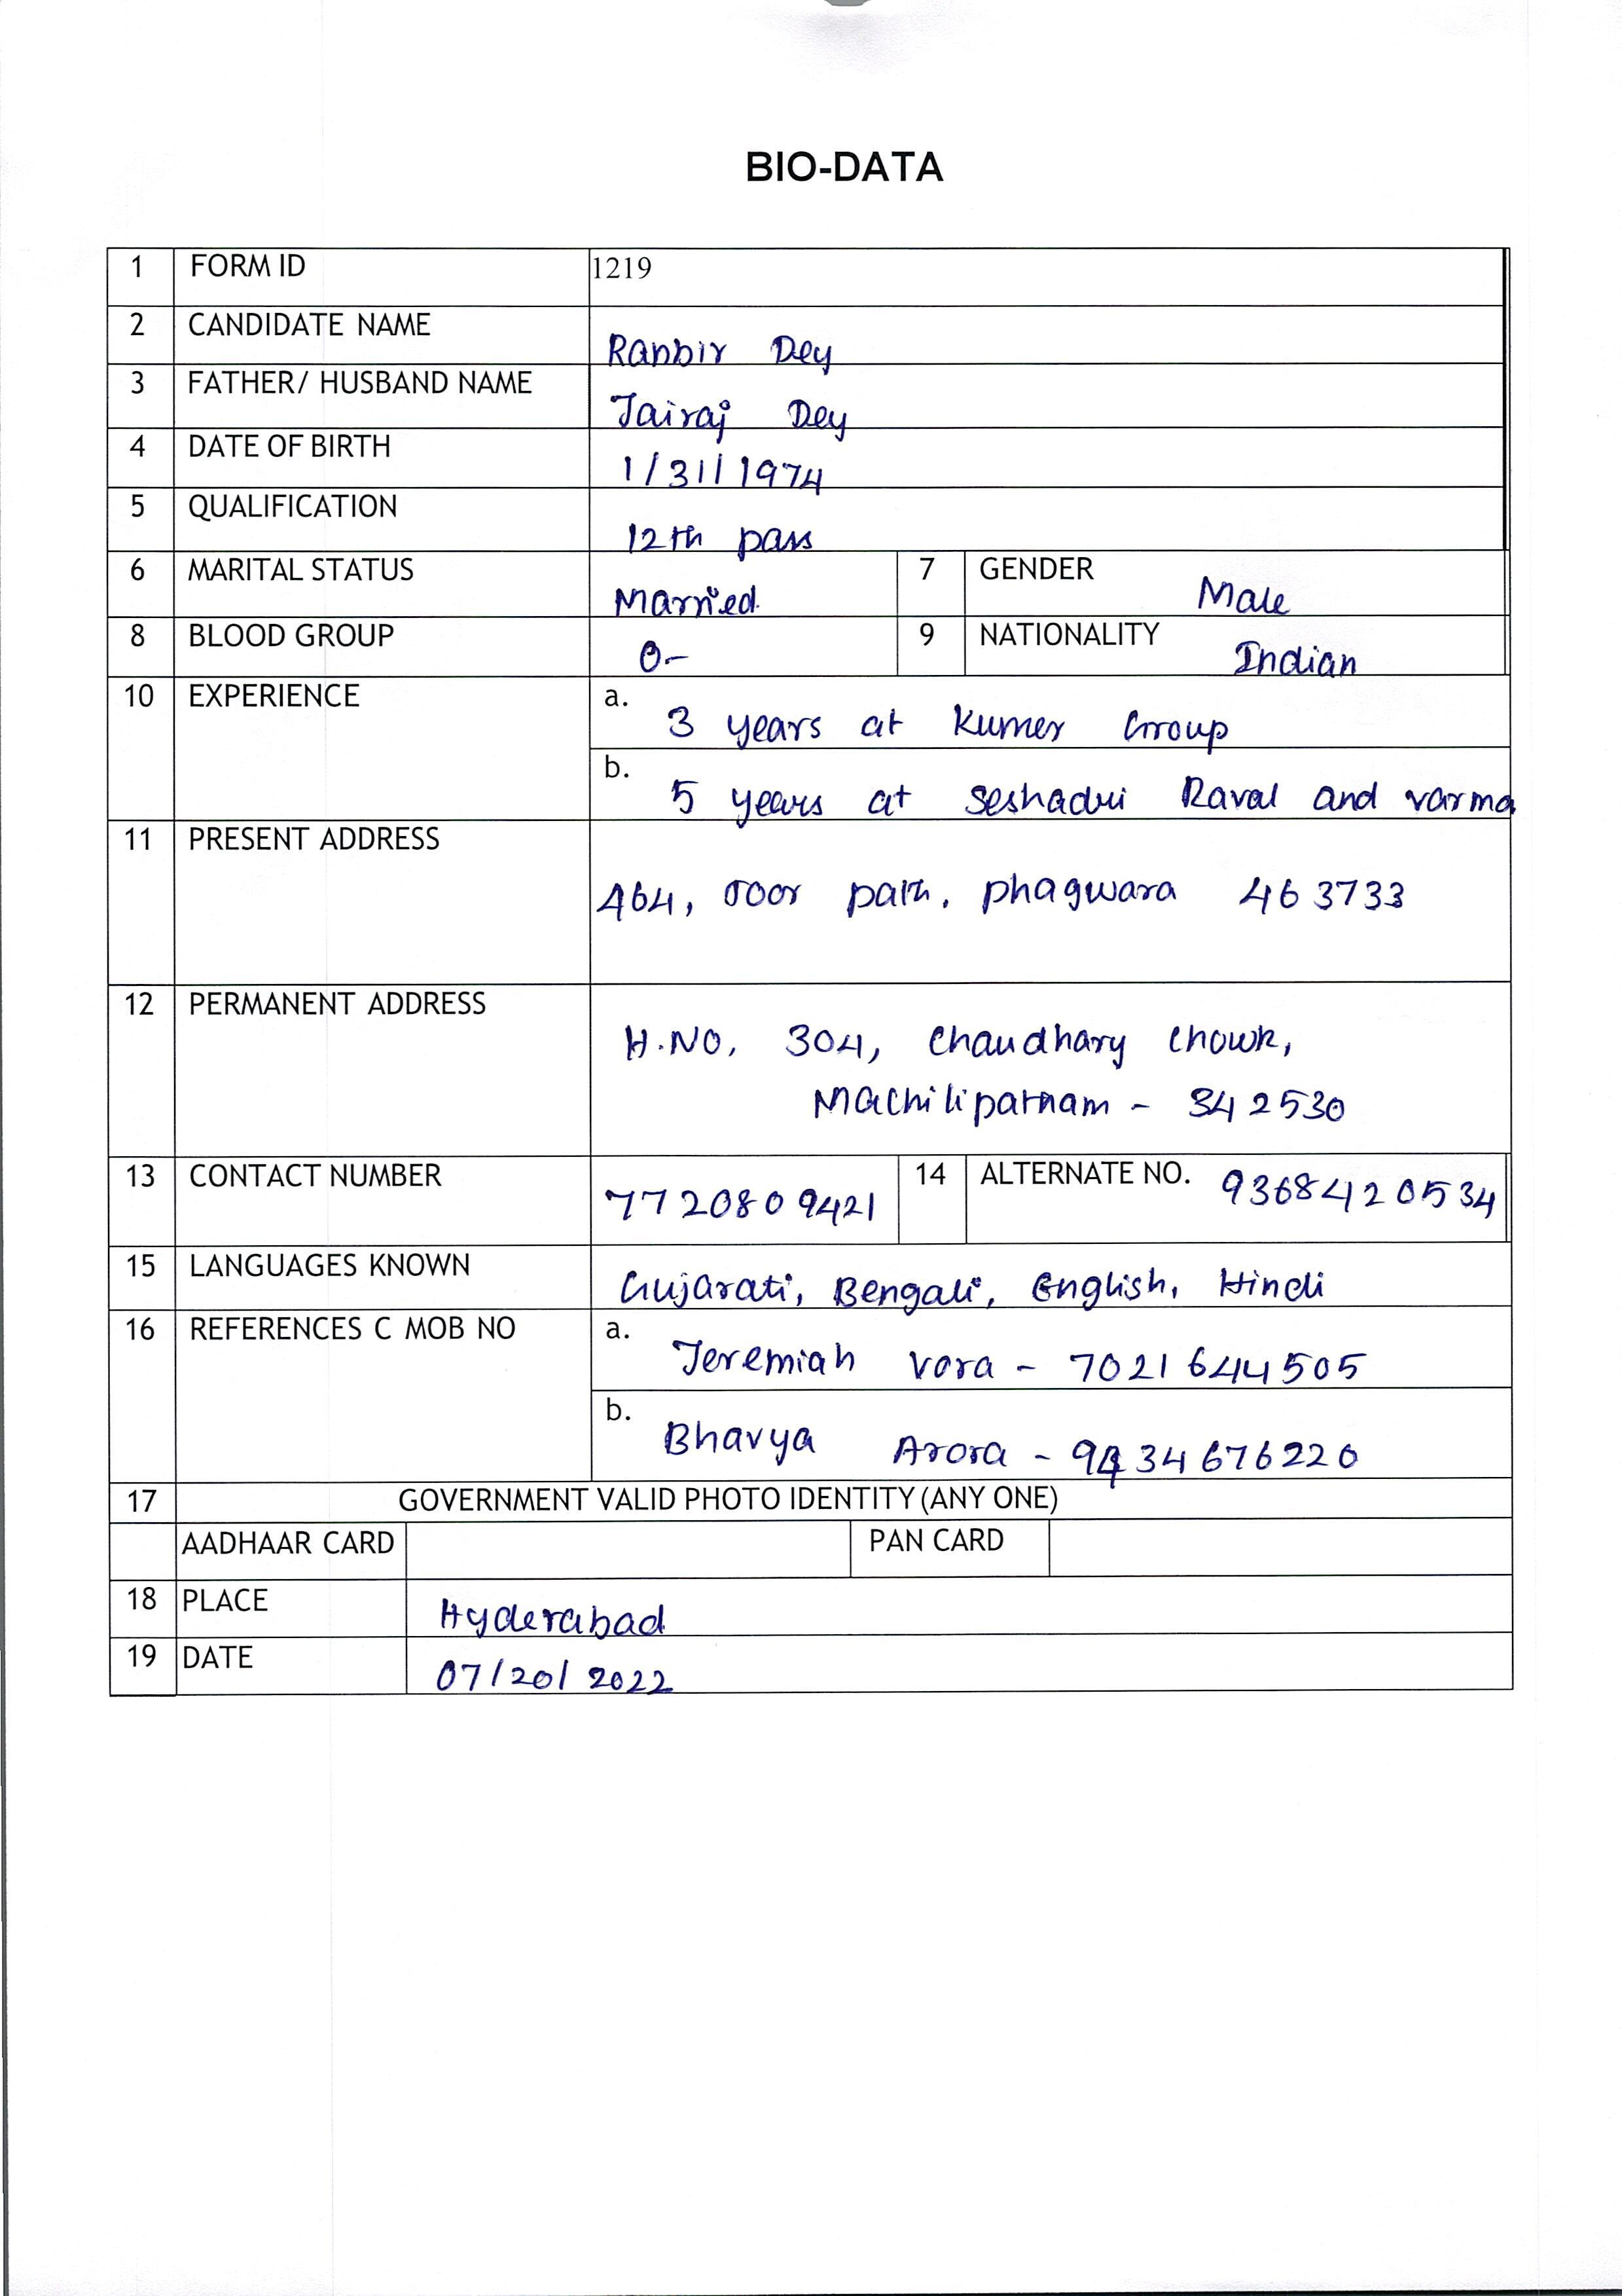 BIO-DATA
1 FORM ID 1219
2 CANDIDATE NAME Ranbir Dey
3 FATHER/ HUSBAND NAME Jairaj Dey
4 DATE OF BIRTH 1/31/1974
5 QUALIFICATION 12th pass
6 MARITAL STATUS Married 7 GENDER Male
8 BLOOD GROUP O- 9 NATIONALITY Indian
10 EXPERIENCE a. 3 years at Kumer Group
b. 5 years at Seshadri Raval and varma
11 PRESENT ADDRESS
A64, Door path, phagwara 463733
12 PERMANENT ADDRESS
H.NO, 304, Chaudhary Chowk,
Machilipatnam - 342530
13 CONTACT NUMBER 7720809421 14 ALTERNATE NO. 9368420534
15 LANGUAGES KNOWN Gujarati, Bengali, English, Hindi
16 REFERENCES C MOB NO a. Jeremiah vora - 7021644505
b. Bhavya Arora - 9434676220
17 GOVERNMENT VALID PHOTO IDENTITY (ANY ONE)
AADHAAR CARD PAN CARD
18 PLACE Hyderabad
19 DATE 07/20/2022